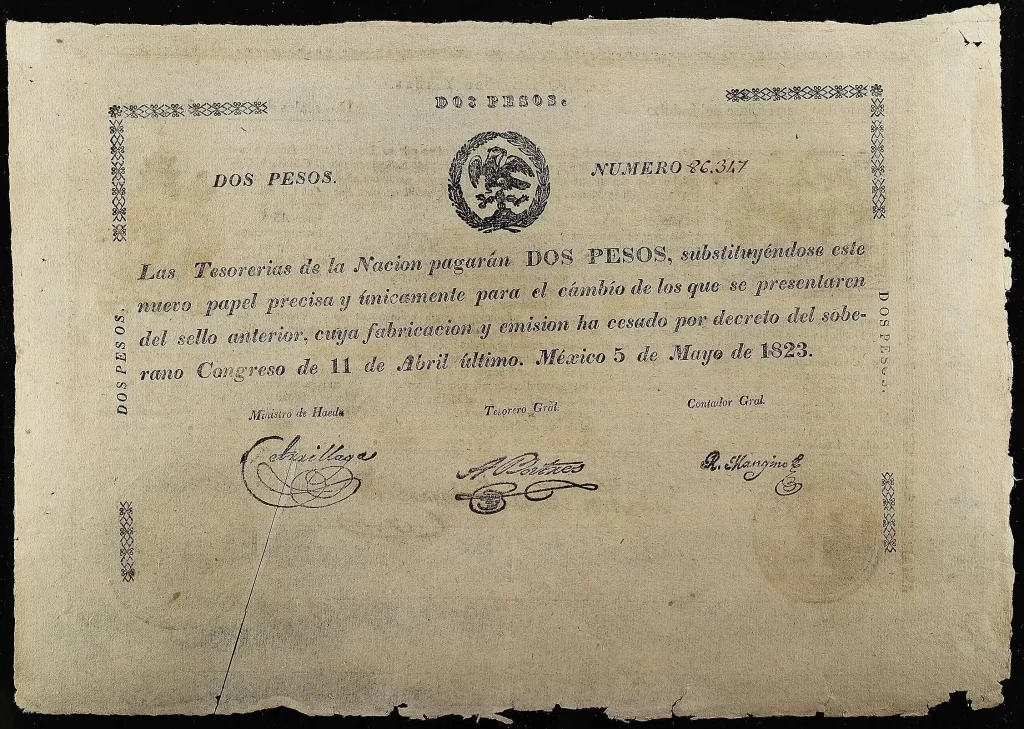 DOS PESOS.
DOS PESOS.
NUMERO 86.347
Las Tesorerias de la Nacion pagarán DOS PESOS, substituyéndose este
nuevo papel precisa y únicamente para el cámbio de los que se presentaren
del sello anterior, cuya fabricacion y emision ha cesado por decreto del sobe-
rano Congreso de 11 de Abril último. México 5 de Mayo de 1823.
DOS PESOS.
DOS PESOS.
Ministro de Hacda
Tesorero Gral.
Contador Gral.
Arrillaga
A Batres
R. Mangino